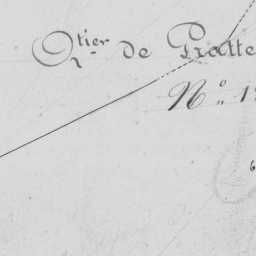 Qtier de Pratte
N° 1
6